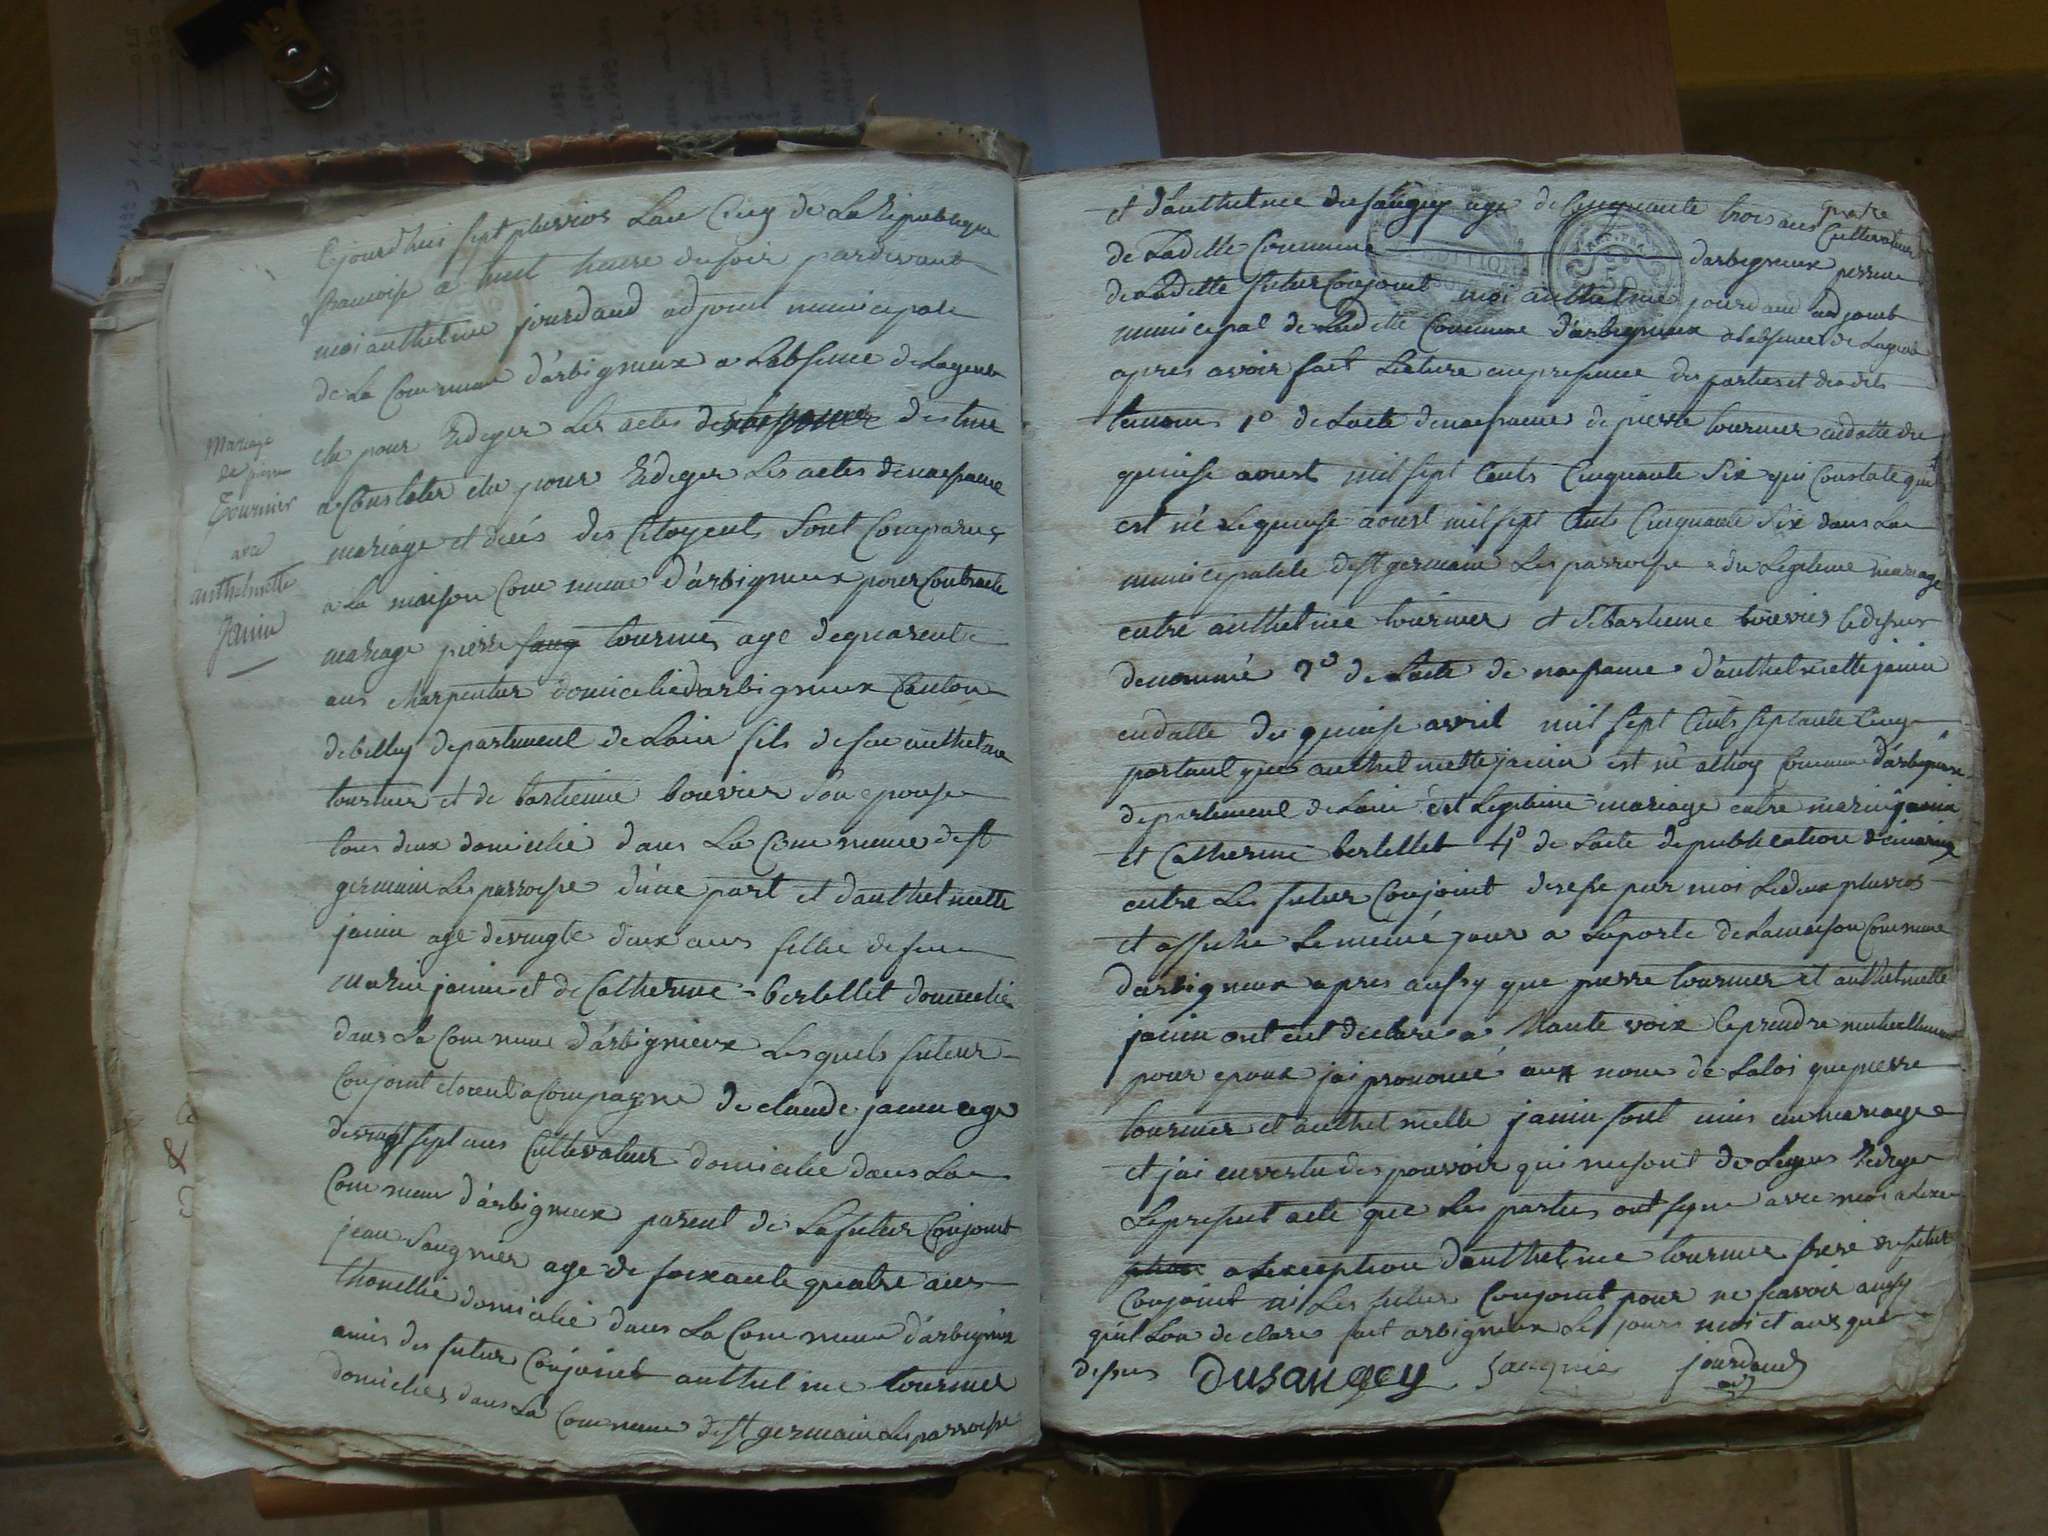 Mariage
de pierre
Tournier
avec
anthelmette
Janin
Ejourdhui sept pluvios Lan Cinq de La Republique
francoise a huit heure du soir pardevant
moi anthelme jourdand adjoint municipale
de La Commune d'arbignieux a Labsence de Lagent
elu pour Rediger Les actes des tine
a Constater elu pour Rediger Les actes de naissance
mariage et décés des Citoyents Sont Comparus
a La maison Commune d'arbignieux pour Contracte
mariage pierre tournier age de quarente
ans Charpentier domicilie d'arbignieux Canton
de belley departement de Lain fils de feu anthelme
tournier et de bastienne bouvier Son epouse
tous deux domicilié dans La Commune de st
germain Les parroisse d'une part et danthelmette
janin age de vingte deux ans fillie de feu
marin janin et de Catherine bertellet domicilie
dans La Commune d'arbignieux Les quels futur
Conjoint etoient acompagne de claude janin age
de vingt sept ans Cultivateur domicilie dans La
Commune d'arbignieux parent de La futur Conjoint
jean Saugnier age de soixante quatre ans
thonellie domicilié dans La Commune d'arbignieux
amis des futur Conjoint anthelme tournier
domicilies dans La Commune de st germain Les parroisse
et d'anthelme dusaugey age de Cinquante trois ans Cultivateur
de Ladite Commune d'arbignieux
de Laditte futur Conjoint moi anthelme jourdand adjoint
municipal de Ladite Commune d'arbignieux a Labsence de Lagent
apres avoir fait Lecture en presence des parties et desdits
temoins 1° de Lacte de naissance de pierre tournier en datte du
quinse aoust mil sept Cents Cinquante Six qui Constate quil
est né Le quinse aoust mil sept Cents Cinquante Six dans La
municipalité de st germain Les parroisse du Legitime mariage
entre anthelme tournier et bastienne bouvier Cedesus
denommé 2° de Lacte de naissance d'anthelmette janin
en datte du quinse avril mil sept Cents septante Cinq
portant que anthelmette janin est né a thoy Commune d'arbignieux
departement de Lain est Legitime mariage entre marin janin
et Catherine bertellet 4° de Lacte de publication de mariage
entre Les futur Conjoint dresse par moi Le deux pluvios
et affiché Le meme jour a La porte de La maison Commune
d'arbignieux apres aussy que pierre tournier et anthelmette
janin ont eut declaré a haute voix Ce prendre mutuellement
pour epoux jai prononcé aux nom de La loi que pierre
tournier et anthelmette janin sont unis en mariage
et jai en vertu des pouvoir qui me sont delegues Rediger
Le present acte que Les parties ont signe avec moi a Lex
a Lexception d'anthelme tournier frere du futur
Conjoint ni Les futur Conjoint pour ne scavoir ainsy
quil Lon declare fait arbignieux Les jours mois et ans que
desus DUSAUGEY Saugnie jourdand
adj